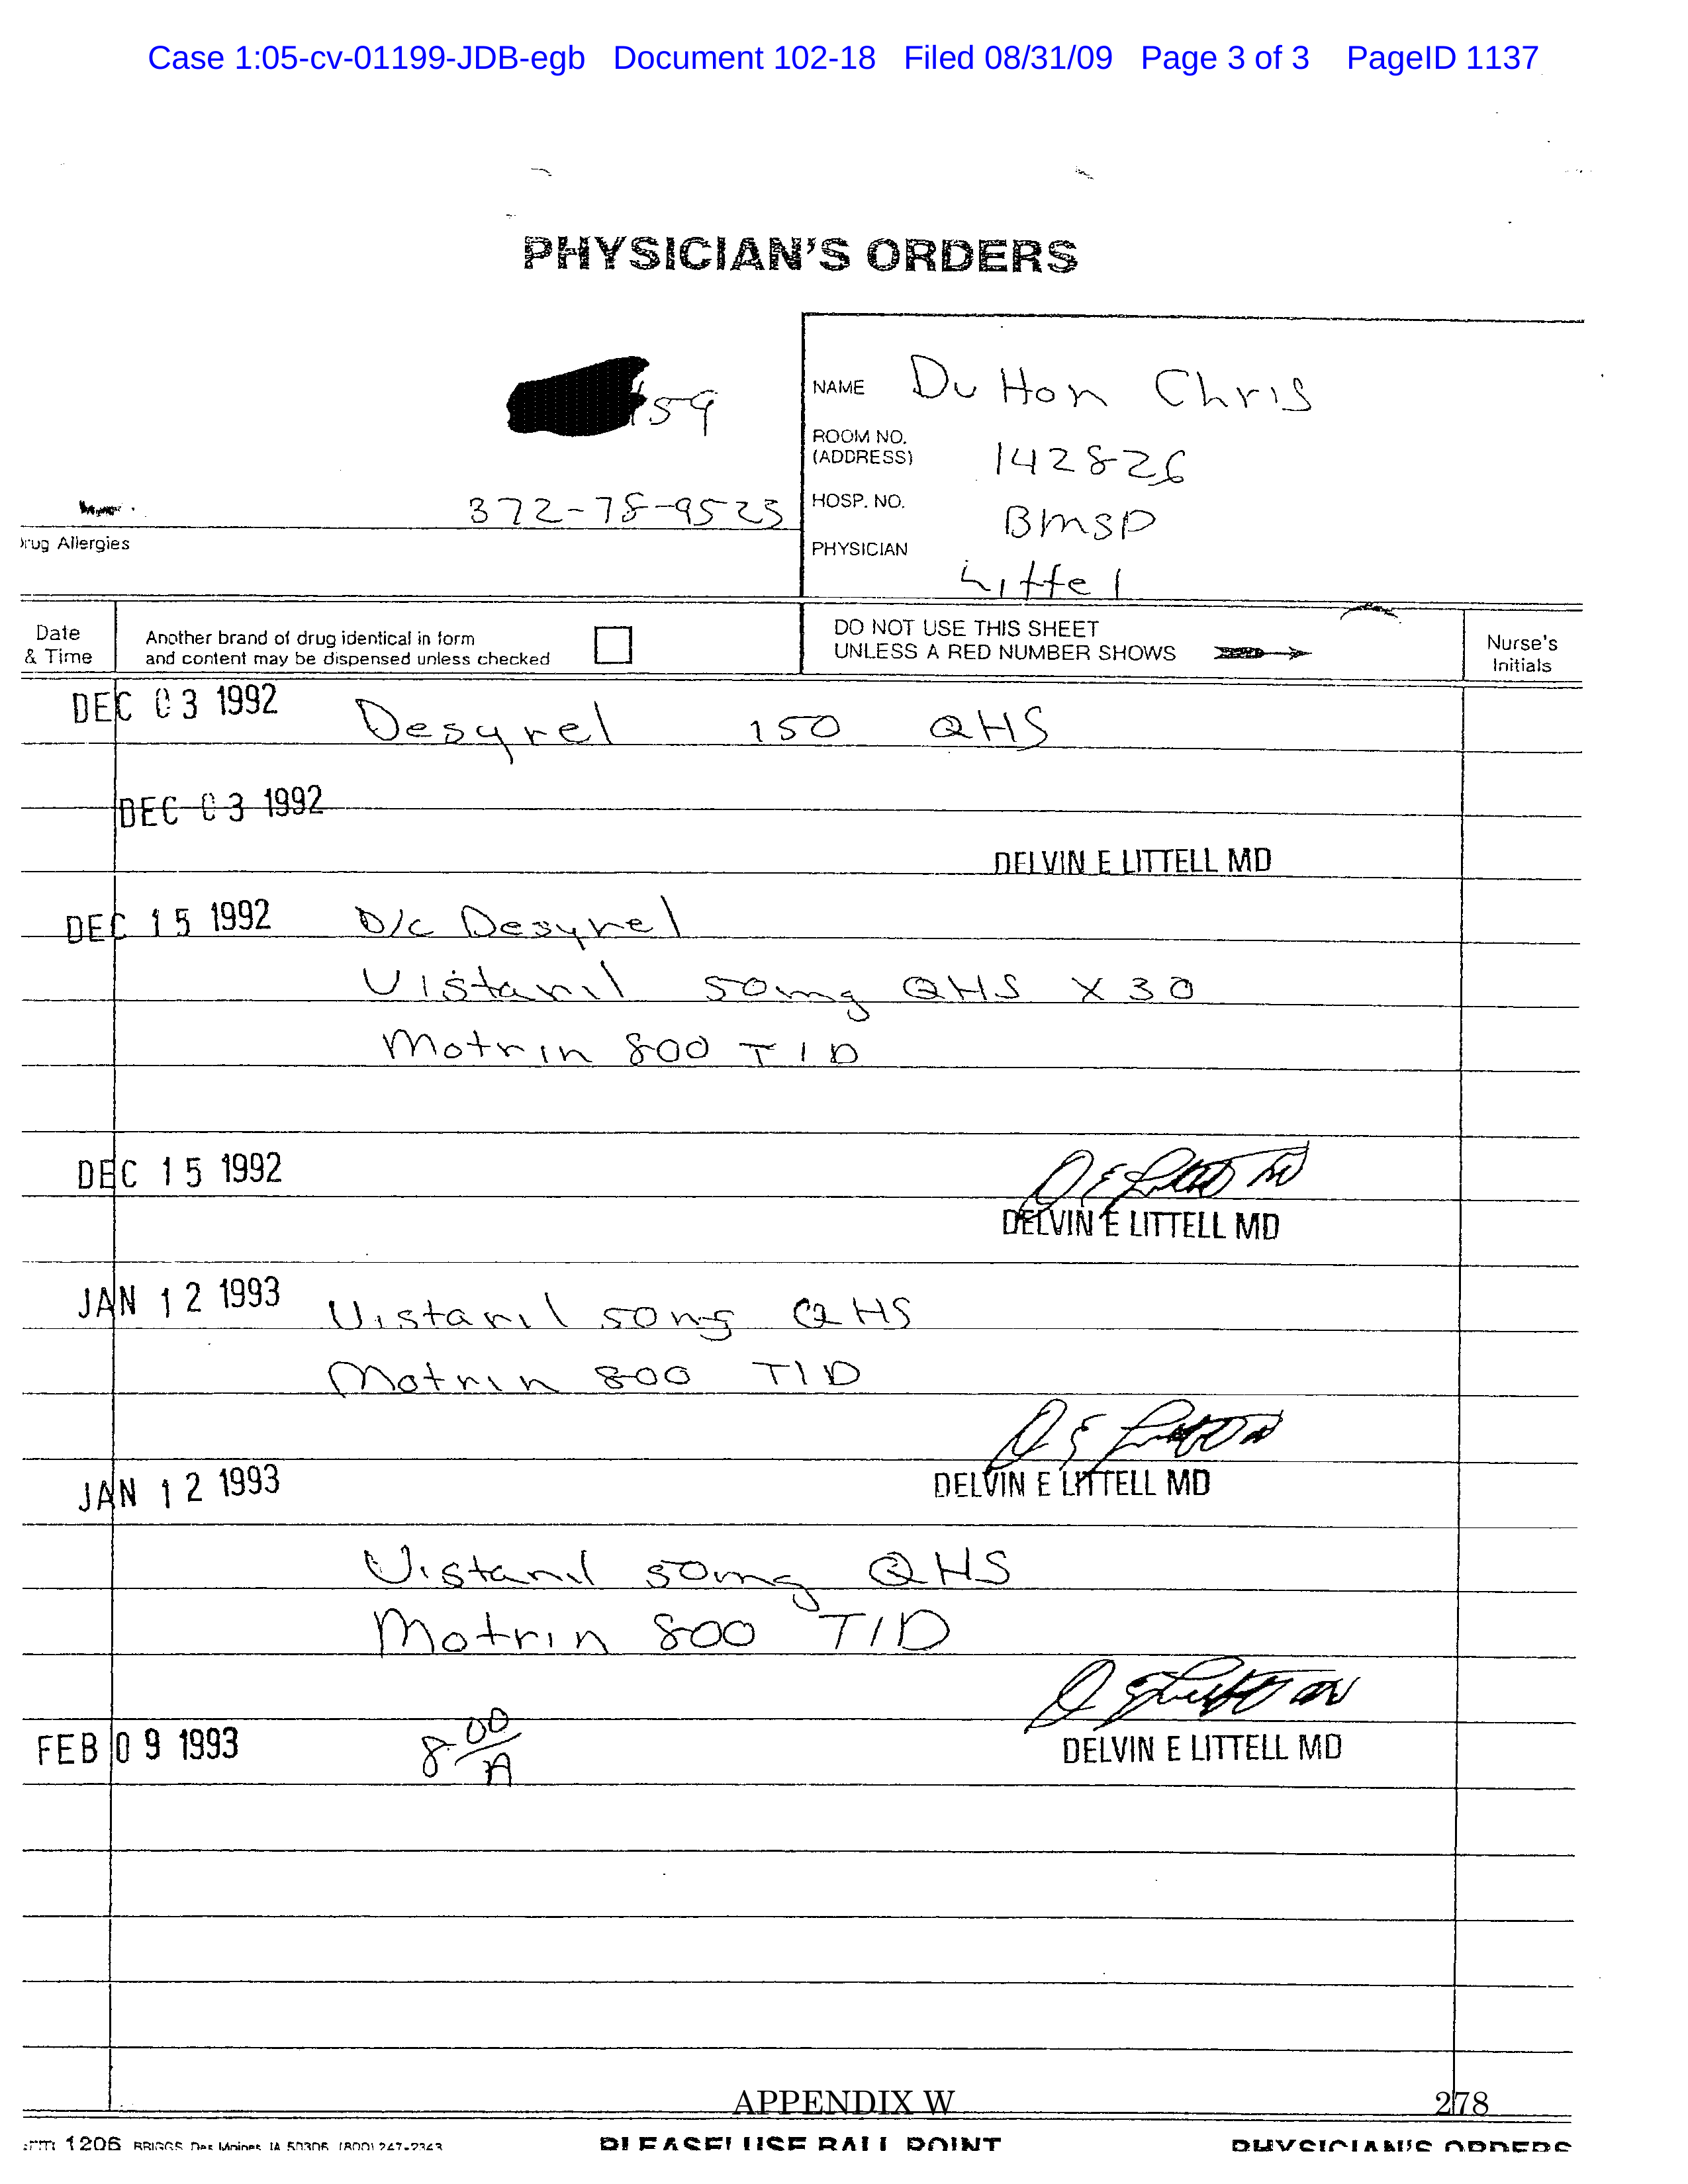 Case 1:05-cv-01199-JDB-egb Document 102-18 Filed 08/31/09 Page 3 of 3 PageID 1137
PHYSICIAN'S ORDERS
59
NAME Dutton Chris
ROOM NO.
(ADDRESS) 142826
372-78-9523
HOSP. NO. BMSP
rug Allergies
PHYSICIAN Littel
Date
& Time
Another brand of drug identical in form
and content may be dispensed unless checked
DO NOT USE THIS SHEET
UNLESS A RED NUMBER SHOWS
Nurse's
Initials
DEC 03 1992 Desyrel 150 QHS
DEC 03 1992
DELVIN E LITTELL MD
DEC 15 1992 D/c Desyrel
Vistaril 50mg QHS X 30
Motrin 800 TID
DEC 15 1992
DELVIN E LITTELL MD
JAN 12 1993 Vistaril 50mg QHS
Motrin 800 TID
JAN 12 1993 DELVIN E LITTELL MD
Vistaril 50mg QHS
Motrin 800 TID
FEB 09 1993 8 00/A DELVIN E LITTELL MD
APPENDIX W 278
1206 BRIGGS, Des Moines, IA 50306 (800) 247-2343 PLEASE! USE BALL POINT PHYSICIAN'S ORDERS